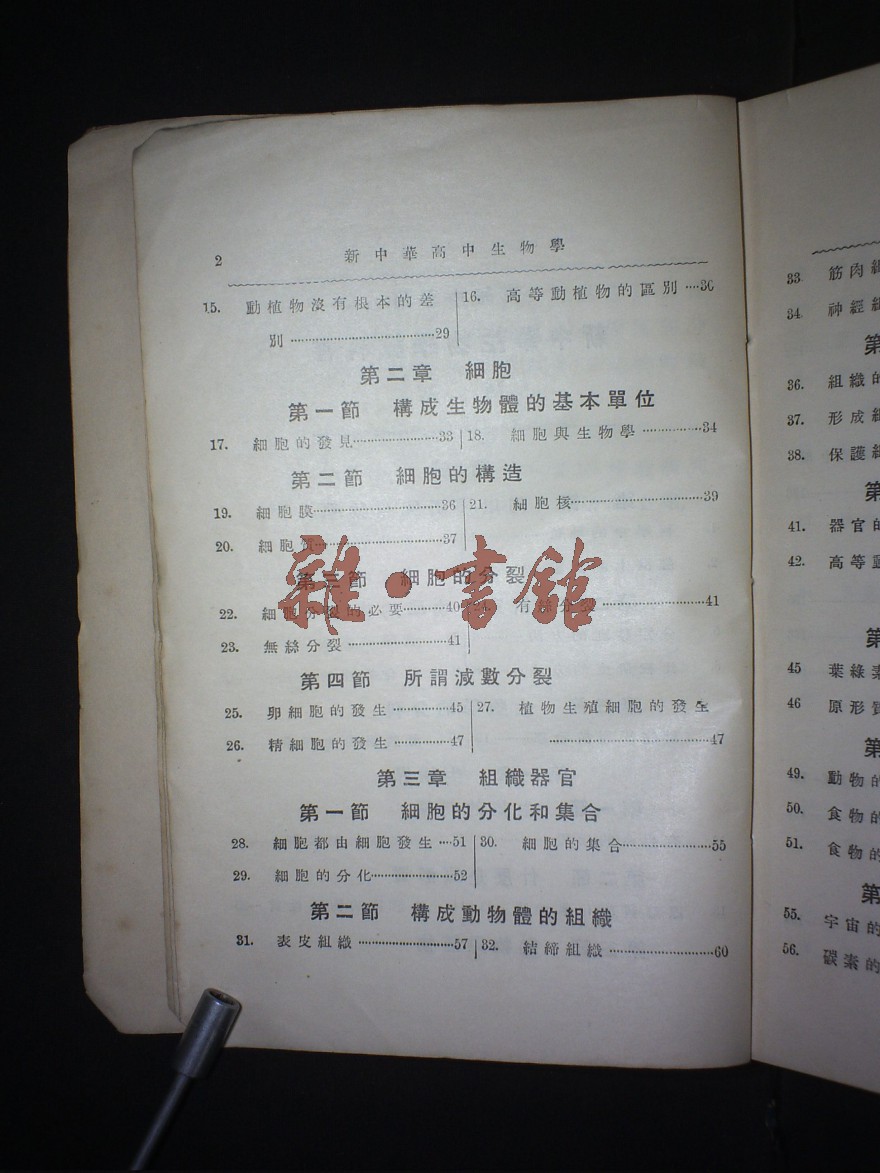 2 新中華高中生物學
15. 動植物沒有根本的差
別 ⋯⋯29
16. 高等動植物的區別⋯30
第二章 細胞
第一節 構成生物體的基本單位
17. 細胞的發見⋯⋯33
18. 細胞與生物學⋯⋯34
第二節 細胞的構造
19. 細胞膜⋯⋯36
20. 細胞質⋯⋯37
21. 細胞核⋯⋯39
第三節 細胞的分裂
22. 細胞分裂的必要⋯⋯40
23. 無絲分裂⋯⋯41
24. 有絲分裂⋯⋯41
第四節 所謂減數分裂
25. 卵細胞的發生⋯⋯45
26. 精細胞的發生⋯⋯47
27. 植物生殖細胞的發生
⋯⋯47
第三章 組織器官
第一節 細胞的分化和集合
28. 細胞都由細胞發生⋯51
29. 細胞的分化⋯⋯52
30. 細胞的集合⋯⋯55
第二節 構成動物體的組織
31. 表皮組織⋯⋯57
32. 結締組織⋯⋯60
雜·書館
33. 筋肉組
34. 神經組
第
36. 組織的
37. 形成組
38. 保護組
第
41. 器官的
42. 高等動
第
45 葉綠素
46 原形質
第
49. 動物的
50. 食物的
51. 食物的
第
55. 宇宙的
56. 碳素的